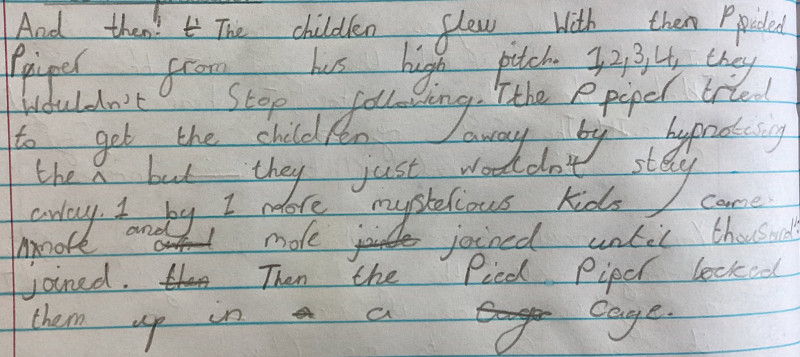 And then! The children flew with then Ppieded
Ppiper from his high pitch. 1,2,3,4, they
wouldn't Stop following. Tthe P piper tried
to get the children away by hypnotising
the^ but they just wouldn't stay
away. 1 by 1 more mysterious kids came.
Mmore and more joined until thousand
joined. then Then the Pied Piper locked
them up in a a Cage Cage.